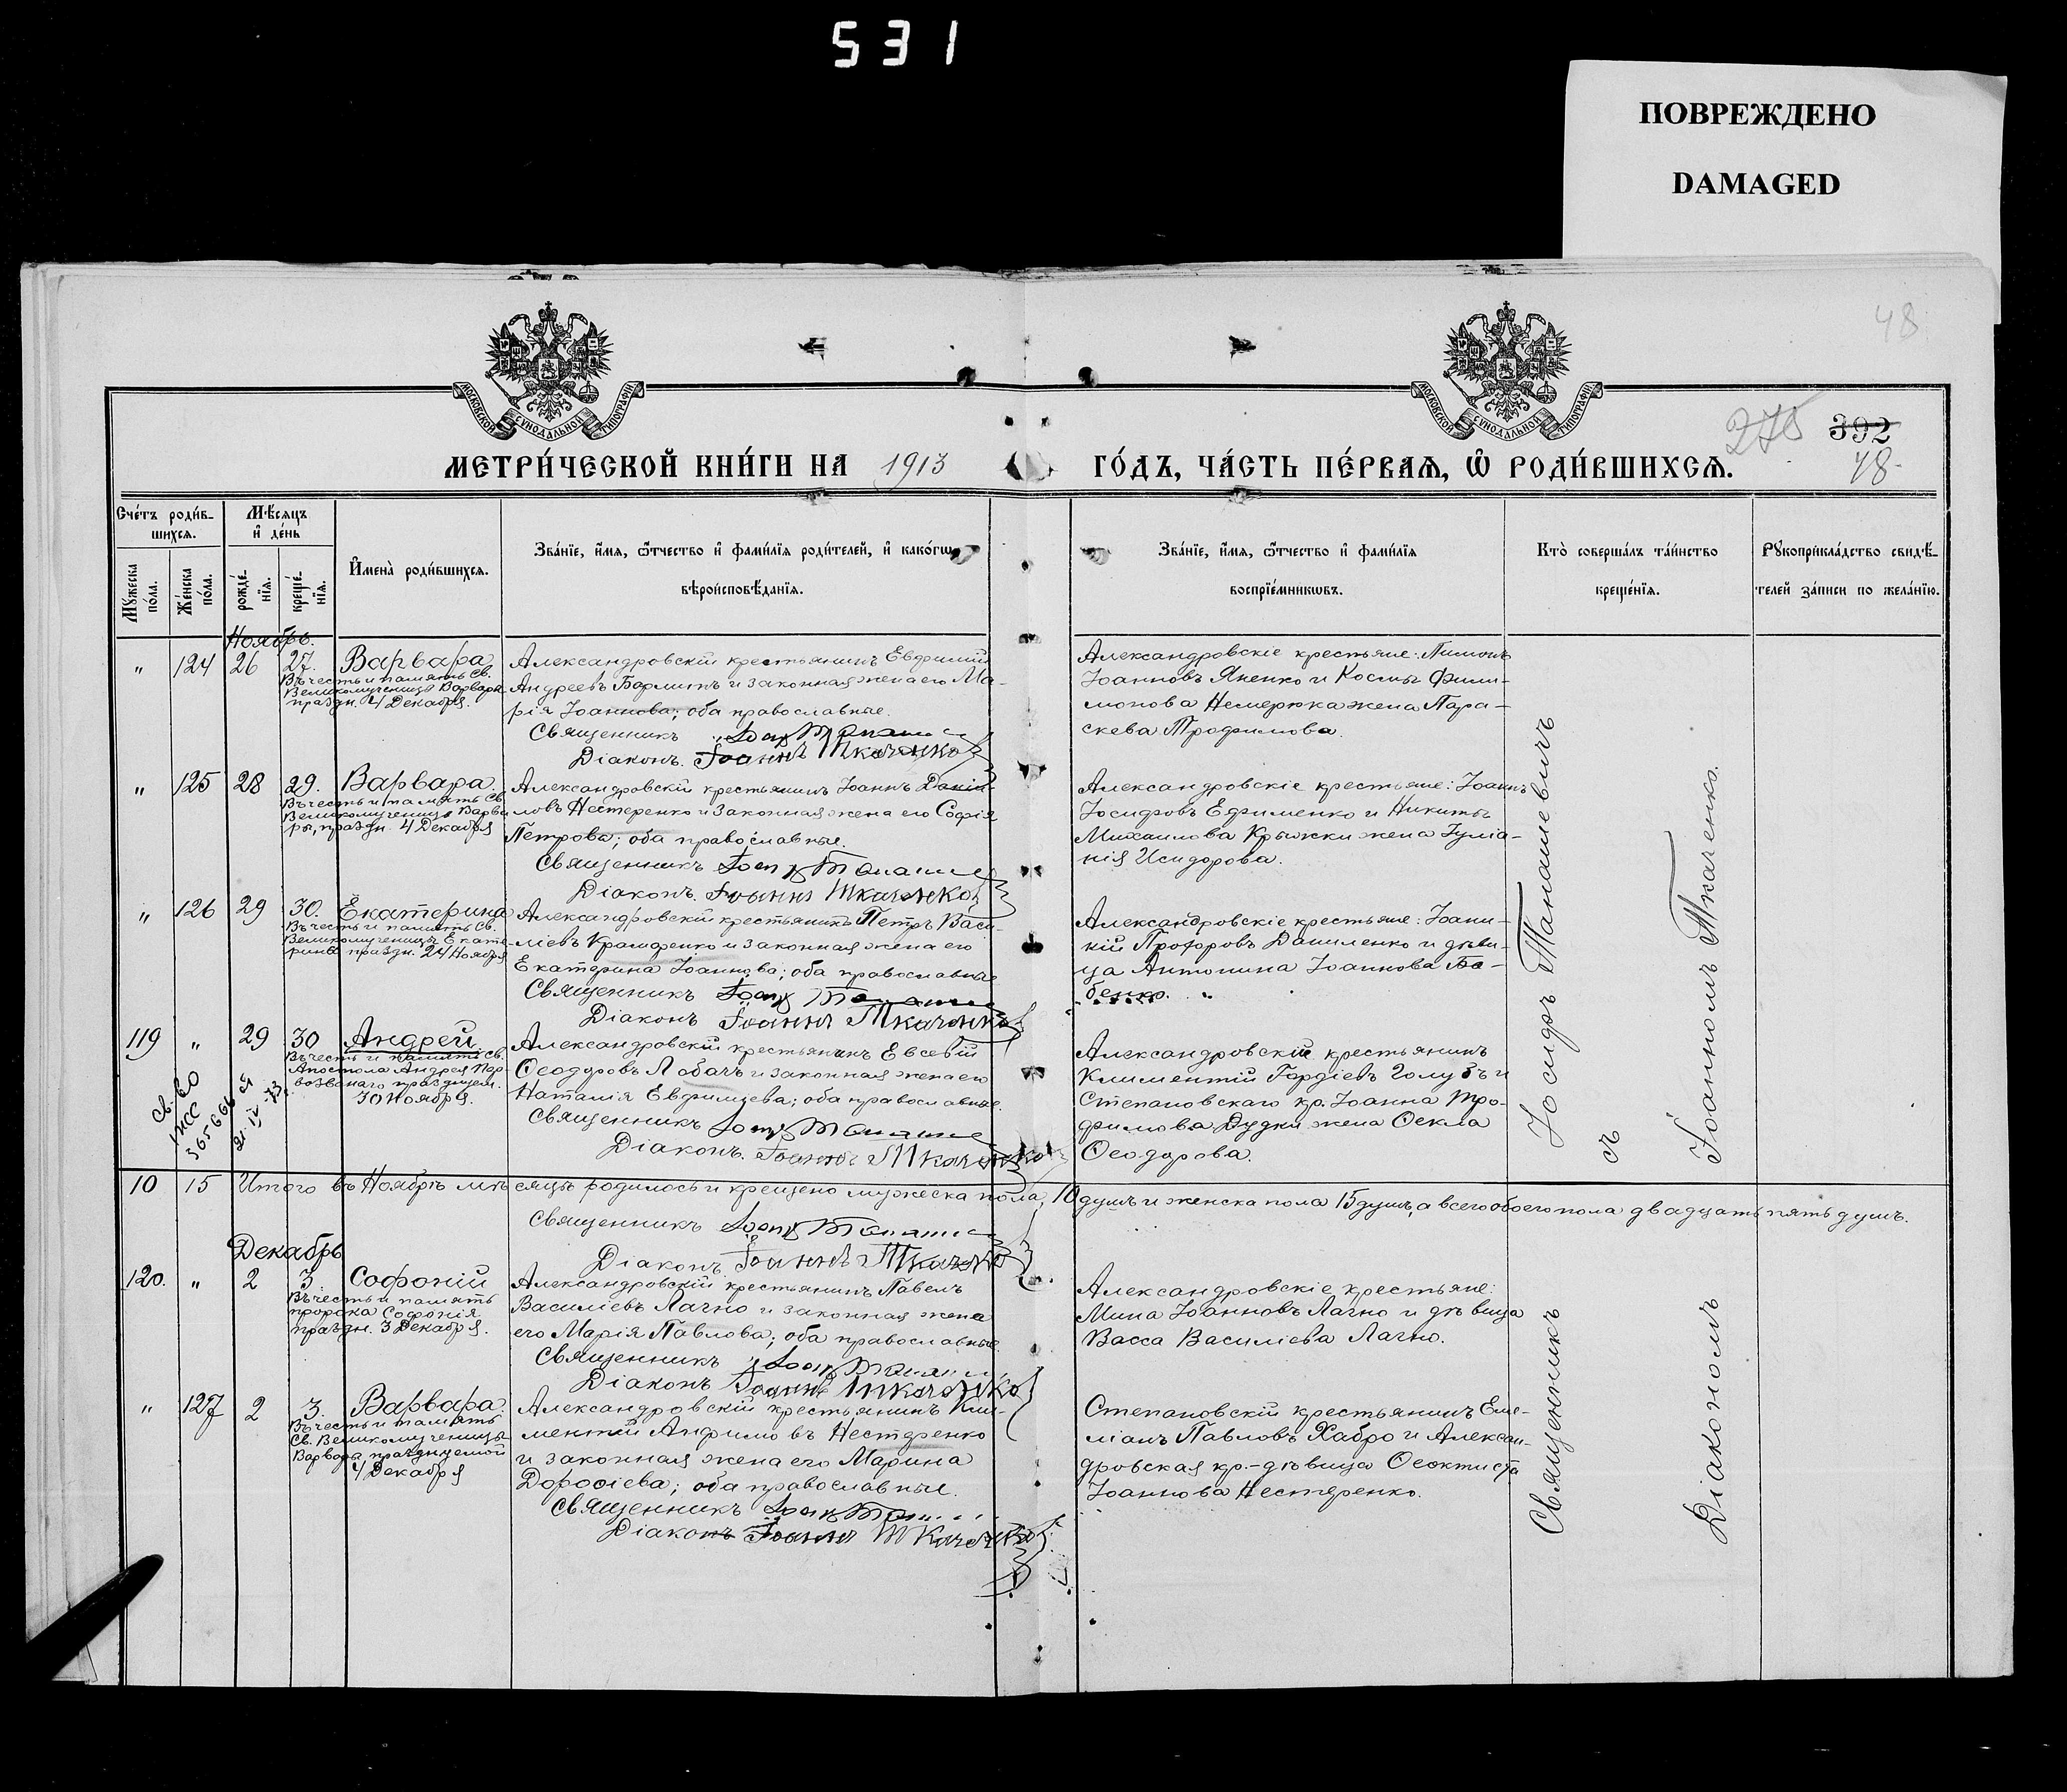 531
ПОВРЕЖДЕНО
DAMAGED
48
МОСКОВСКОЙ СѴНОДАЛЬНОЙ ТИПОГРАФІИ
МОСКОВСКОЙ СѴНОДАЛЬНОЙ ТИПОГРАФІИ
275 392
48
МЕТРИ́ЧЕСКОЙ КНИ́ГИ НА 1913 ГО́ДЪ, ЧА́СТЬ ПЕ́РВАѦ, Ѡ҆ РОДИ́ВШИХСѦ.
Сче́тъ роди́в-
шихсѧ.
Мѣ́сѧцъ
и҆ де́нь
И҆мена̀ роди́вшихсѧ.
Зва́нїе, и҆́мѧ, ѻ҆́тчество и҆ фами́лїѧ роди́телей, и҆ како́гѡ
вѣроисповѣ́данїѧ.
Зва́нїе, и҆́мѧ, ѻ҆́тчество и҆ фами́лїѧ
воспрїе́мникѡвъ.
Кто̀ соверша́лъ та́инство
креще́нїѧ.
Рꙋкоприкла́дство свидѣ́-
телей за́писи по жела́нїю.
Мꙋ́жеска
по́ла.
Же́нска
по́ла.
рожде́-
нїѧ.
креще́-
нїѧ.
Ноябрь.
" 124 26 27. Варвара
Въ честь и память Св.
Великомученицы Варвары
праздн. 4 Декабря.
Александровскій крестьянинъ Евфимій
Андреевъ Бормитъ и законная жена его Ма-
рія Іоаннова; оба православные.
Священникъ
Діаконъ. Іоаннъ Ткаченко
Александровскіе крестьяне: Пимонъ
Іоанновъ Яненко и Космы Фили-
монова Немерюка жена Пара-
скева Трофимова.
" 125 28 29. Варвара.
Въ честь и память Св.
Великомученицы Варва-
ры, праздн. 4 Декабря
Александровскій крестьянинъ Іоаннъ Даніи-
ловъ Нестеренко и законная жена его Софія
Петрова; оба православные.
Священникъ
Діаконъ. Іоаннъ Ткаченко
Александровскіе крестьяне: Іоаннъ
Іосифовъ Ефименко и Никиты
Михаилова Крыжки жена Іуліа-
нія Исидорова.
" 126 29 30. Екатерина
Въ честь и память Св.
Великомученицы Екате-
рины праздн. 24 Ноября
Александровскій крестьянинъ Петръ Васи-
ліевъ и законная жена его
Екатерина Іоаннова; оба православные
Священникъ
Діаконъ Іоаннъ Ткаченко
Александровскіе крестьяне: Іоанн-
кій Прохоровъ Даниленко и дѣви-
ца Антонина Іоаннова Ба-
бенко.
119 " 29 30 Андрей
Въ честь и память Св.
Апостола Андрея Пер-
возваннаго празднуем.
30 Ноября.
Александровскій крестьянинъ Евсевій
Ѳеодоровъ Лобачъ и законная жена его
Наталія Евфиміева; оба православные.
Священникъ
Діаконъ. Іоаннъ Ткаченко
Александровскій крестьянинъ
Климентій Гордіевъ Голубъ и
Степановскаго кр. Іоанна Тро-
фимова Дудки жена Ѳекла
Ѳеодорова.
св-во
10 15 Итого въ Ноябрѣ мѣсяцѣ родилось и крещено мужеска пола 10 душъ и женска пола 15 душъ, а всего обоего пола двадцать пять душъ.
Священникъ
Діаконъ Іоаннъ Ткаченко
Декабрь
120. " 2 3. Софоній
Въ честь и память
пророка Софонія
праздн. 3 Декабря.
Александровскій крестьянинъ Павелъ
Василіевъ Лагно и законная жена
его Марія Павлова; оба православные.
Священникъ
Діаконъ Іоаннъ Ткаченко
Александровскіе крестьяне:
Мина Іоанновъ Лагно и дѣвица
Васса Василіева Лагно.
" 127 2 3. Варвара.
Въ честь и память
Св. Великомученицы
Варвары, празднуемой
4 Декабря
Александровскій крестьянинъ Кли-
ментій Анфимовъ Нестеренко
и законная жена его Марина
Дорофіева; оба православные.
Священникъ
Діаконъ Іоаннъ Ткаченко
Степановскій крестьянинъ Еми-
ліанъ Павловъ Хабро и Алексан-
дровская кр.-дѣвица Ѳеоктиста
Іоаннова Нестеренко.
Священникъ Іосифъ Танашевичъ
съ
Діакономъ Іоанномъ Ткаченко.